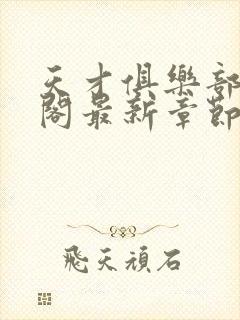 天才俱樂部
閣最新章節
飛天頑石